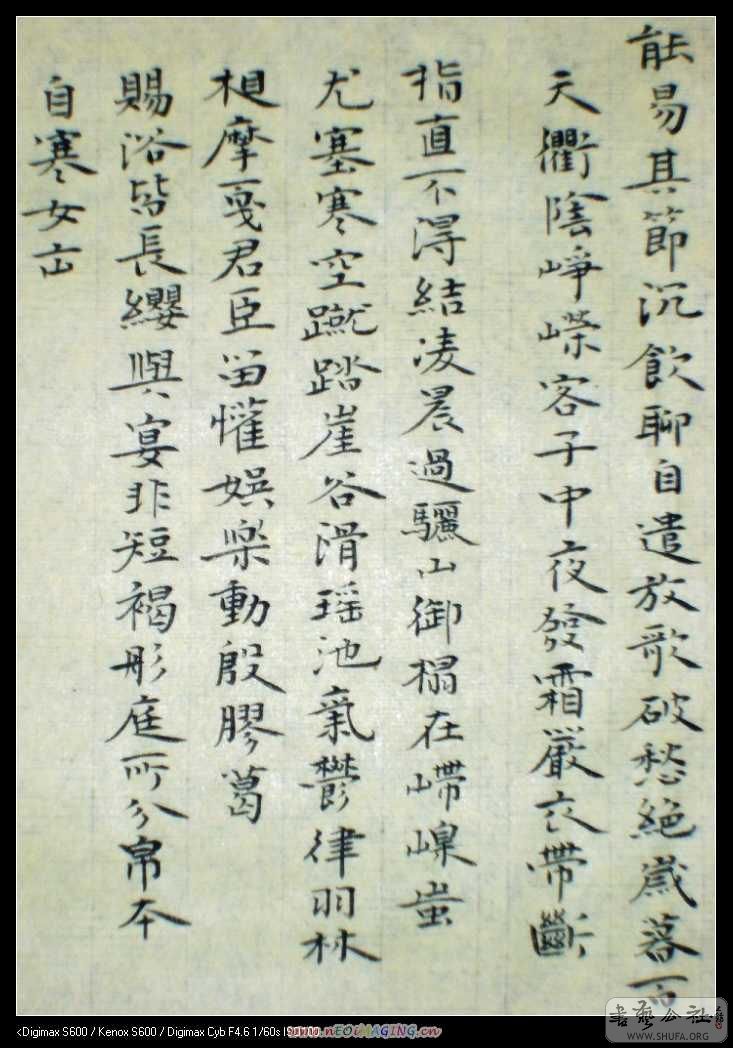 能易其節沉飲聊自遣放歌破愁絕歲暮百
天衢陰崢嶸客子中夜發霜嚴衣帶斷
指直不得結凌晨過驪山御榻在嵽嵲蚩
尤塞寒空蹴踏崖谷滑瑶池氣鬱律羽林
相摩戛君臣留懽娛樂動殷膠葛
賜浴皆長纓與宴非短褐彤庭所分帛本
自寒女出
<Digimax S600 / Kenox S600 / Digimax Cyb F4.6 1/60s
www.nEOiMAGING.cn
書藝公社
WWW.SHUFA.ORG